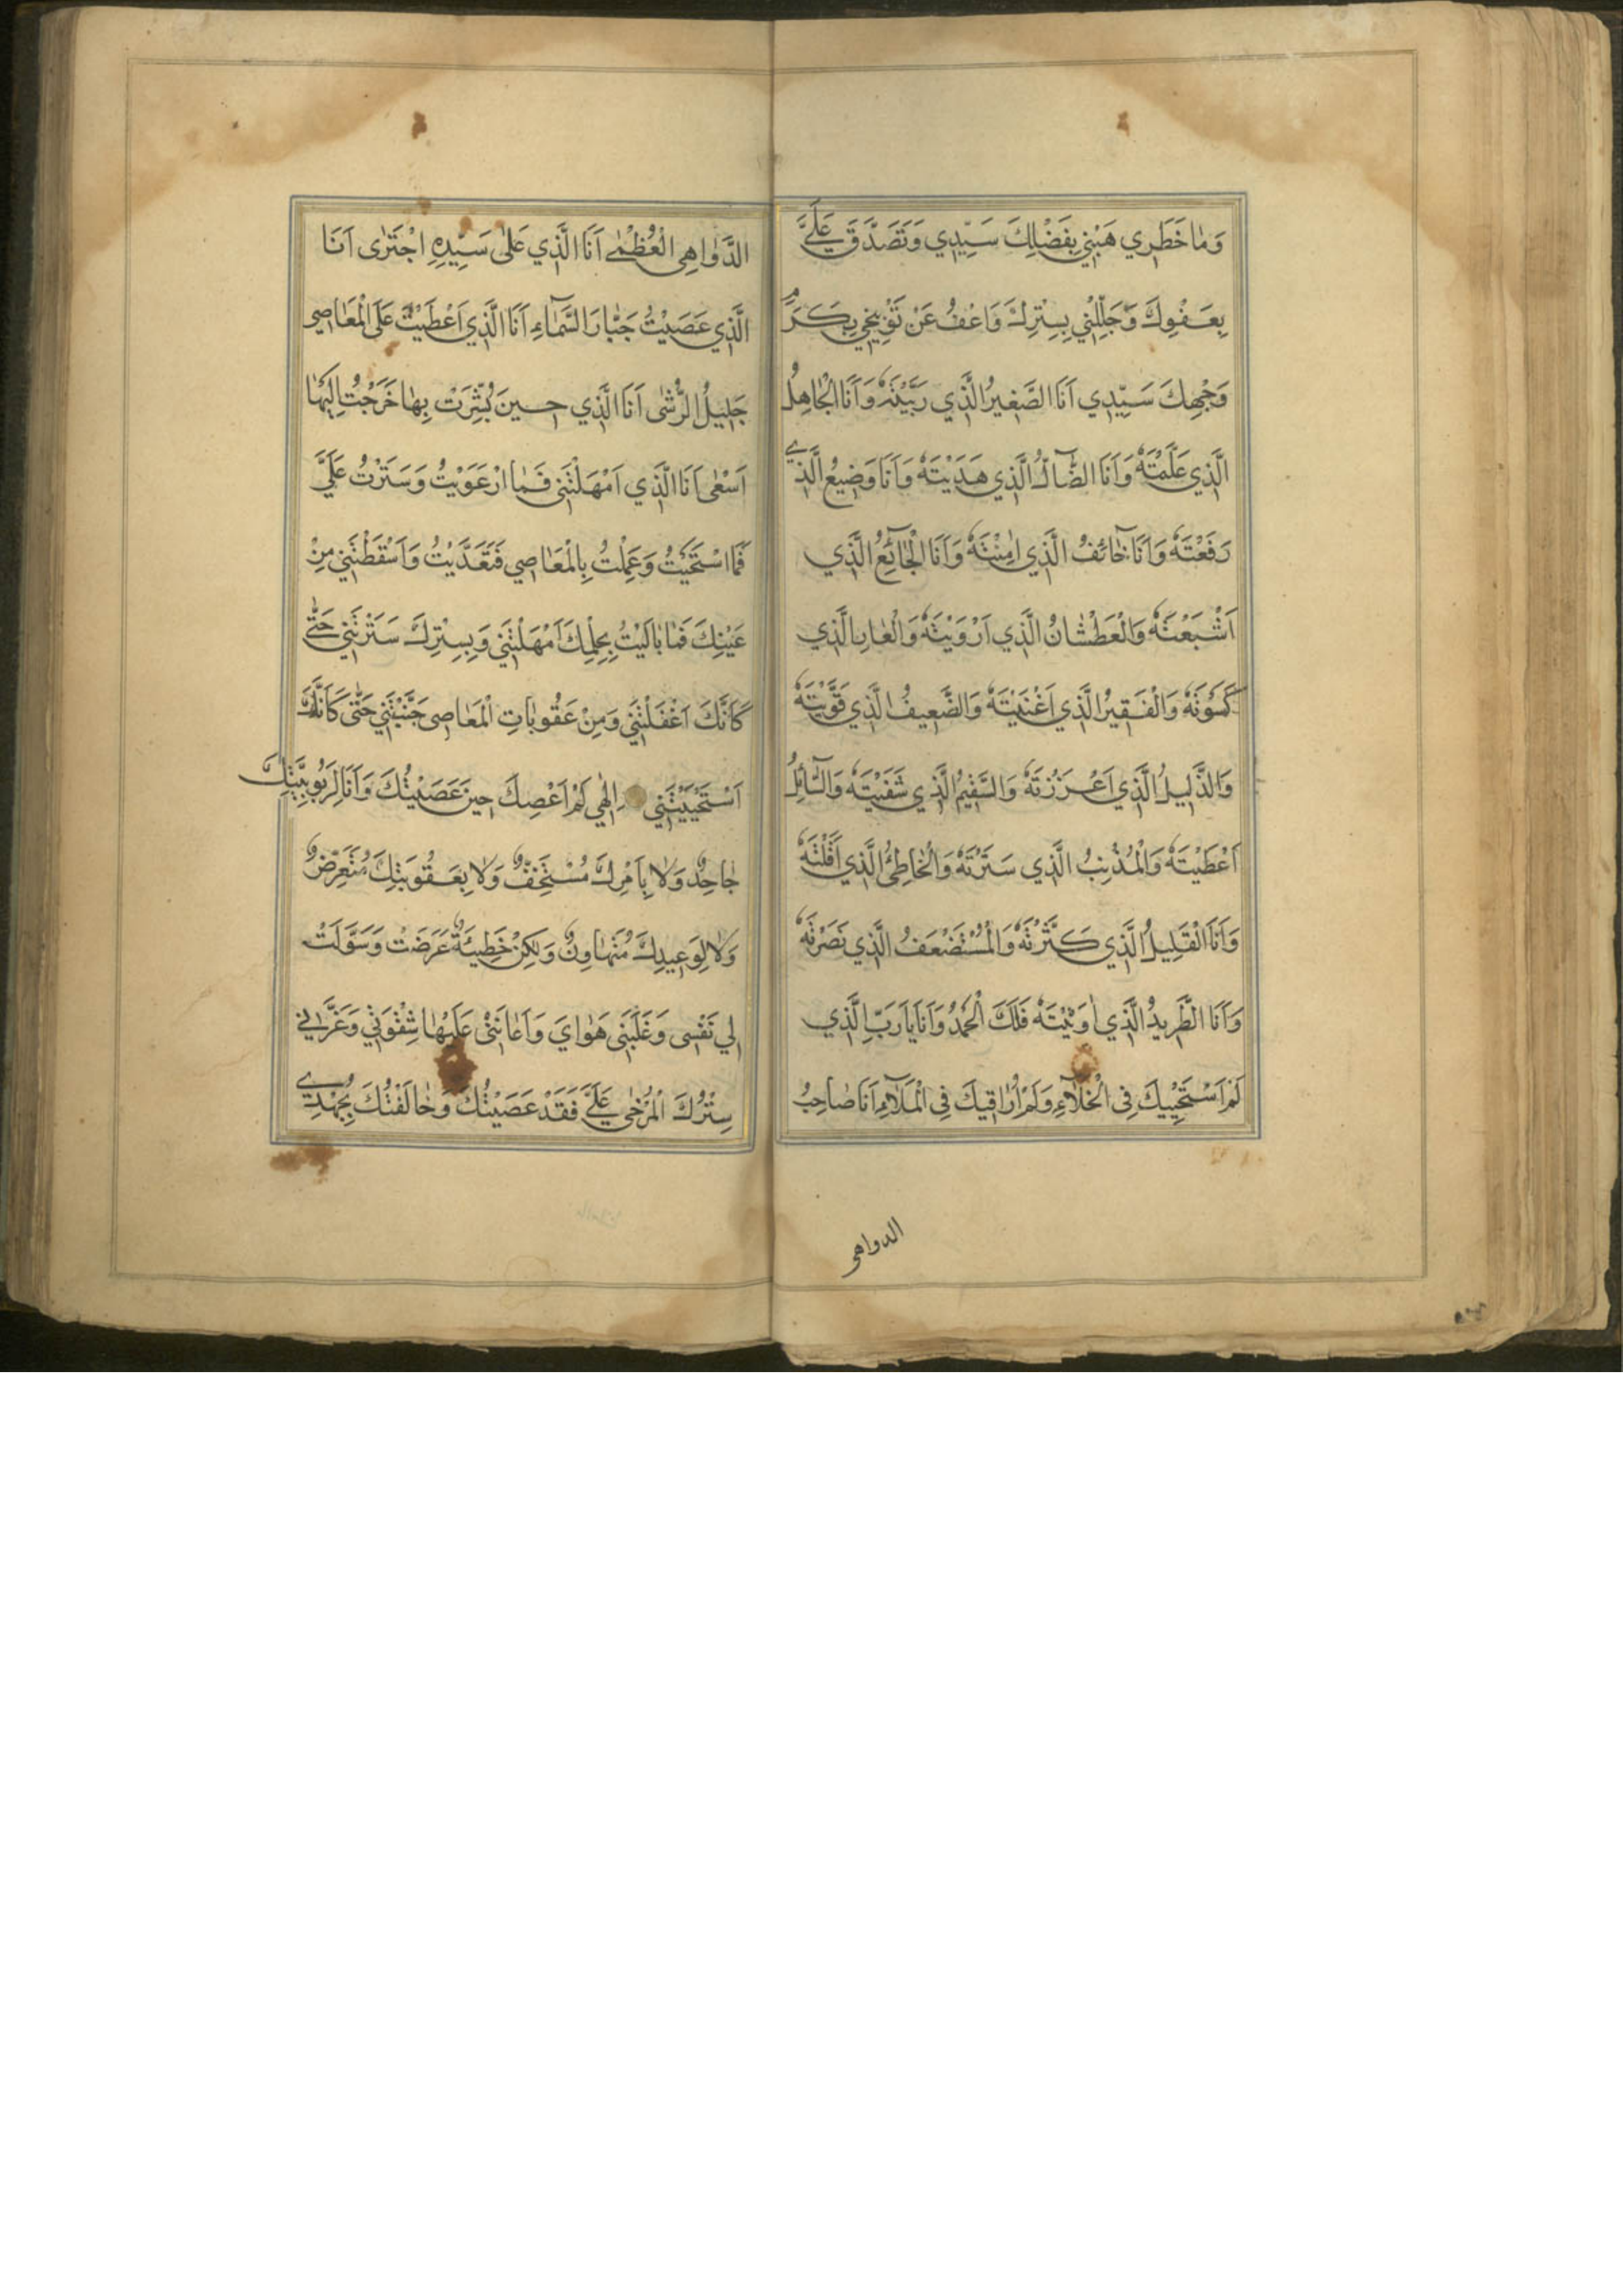 وَمٰا خَطَرِي هَبْنِي بِفَضْلِكَ سَيِّدِي وَتَصَدَّقَ عَلَيَّ
بِعَفْوِكَ وَجَلِّلْنِي بِسِتْرِكَ وَاعْفُ عَنْ تَوْبِيخِي بِكَرَمِ
وَجْهِكَ سَيِّدِي اَنَا الصَّغِيرُ الَّذِي رَبَّيْتَهُ وَاَنَا الْجٰاهِلُ
الَّذِي عَلَّمْتَهُ وَاَنَا الضّٰآلُّ الَّذِي هَدَيْتَهُ وَاَنَا وَضِيعُ الَّذِي
رَفَعْتَهُ وَاَنَا خٰائِفُ الَّذِي اٰمِنْتَهُ وَاَنَا الْجٰآئِعُ الَّذِي
اَشْبَعْتَهُ وَالْعَطْشٰانُ الَّذِي اَرْوَيْتَهُ وَالْعٰارِ الَّذِي
كَسَوْتَهُ وَالْفَقِيرُ الَّذِي اَغْنَيْتَهُ وَالضَّعِيفُ الَّذِي قَوَّيْتَهُ
وَالذَّلِيلُ الَّذِي اَعْزَزْتَهُ وَالسَّقِيمُ الَّذِي شَفَيْتَهُ وَالسّٰآئِلُ
اَعْطَيْتَهُ وَالْمُذْنِبُ الَّذِي سَتَرْتَهُ وَالْخٰاطِئُ الَّذِي اَقَلْتَهُ
وَاَنَا الْقَلِيلُ الَّذِي كَثَّرْتَهُ وَالْمُسْتَضْعَفُ الَّذِي نَصَرْتَهُ
وَاَنَا الطَّرِيدُ الَّذِي اٰوَيْتَهُ فَلَكَ الْحَمْدُ وَاَنَا يٰا رَبِّ الَّذِي
لَمْ اَسْتَحْيِيكَ فِي الْخَلٰآءِ وَلَمْ اُرٰاقِبْكَ فِي الْمَلٰآءِ اَنَا صٰاحِبُ
الدواهى
الدَّوٰاهِى الْعُظْمٰى اَنَا الَّذِي عَلىٰ سَيِّدِهِ اجْتَرٰى اَنَا
الَّذِي عَصَيْتُ جَبّٰارَ السَّمٰآءِ اَنَا الَّذِي اَعْطَيْتُ عَلَى الْمَعٰاصِي
جَلِيلُ الرُّشٰى اَنَا الَّذِي حِينَ بُشِّرَتْ بِهٰا خَرَجْتُ اِلَيْهٰا
اَسْعٰى اَنَا الَّذِي اَمْهَلْتَنِى فَمٰا ارْعَوَيْتُ وَسَتَرْتُ عَلَيَّ
فَمَا اسْتَحْيَيْتُ وَعَمِلْتُ بِالْمَعٰاصِي فَتَعَدَّيْتُ وَاَسْقَطْتَنِي مِنْ
عَيْنِكَ فَمٰا بٰالَيْتُ بِحِلْمِكَ اَمْهَلْتَنِي وَبِسِتْرِكَ سَتَرْتَنِي حَتّٰى
كَاَنَّكَ اَغْفَلْتَنِي وَمِنْ عَقُوبٰاتِ الْمَعٰاصِى جَنَّبْتَنِي حَتّٰى كَاَنَّكَ
اَسْتَحْيَيْتَنِي اِلٰهِي لَمْ اَعْصِكَ حِينَ عَصَيْتُكَ وَاَنَا لِرَبُوبِيَّتِكَ
جٰاحِدٌ وَلٰا بِاَمْرِكَ مُسْتَخِفٌّ وَلٰا بِعَقُوبَتِكَ مُتَعَرِّضٌ
وَلٰا لِوَعِيدِكَ مُتَهٰاوِنٌ وَلٰكِنْ خَطِيئَةٌ عَرَضَتْ وَسَوَّلَتْ
لِي نَفْسِى وَغَلَبَنِى هَوٰايَ وَاَعٰانَنِيْ عَلَيْهٰا شِقْوَتِي وَغَرَّنِي
سِتْرُكَ الْمُرْخٰى عَلَيَّ فَقَدْ عَصَيْتُكَ وَخٰالَفْتُكَ بِجُهْدِي